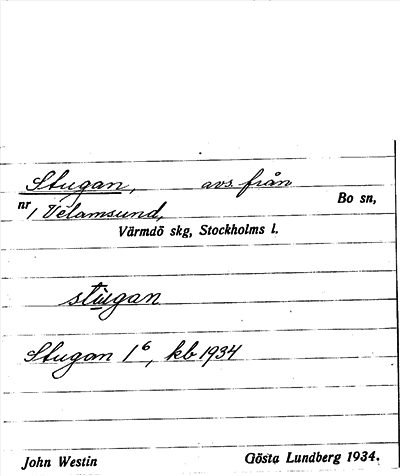 Stugan, avs. från
nr 1 Velamsund, Bo sn,
Värmdö skg, Stockholms l.
stu̲gan
Stugan 1⁶, kb 1934
John Westin Gösta Lundberg 1934.